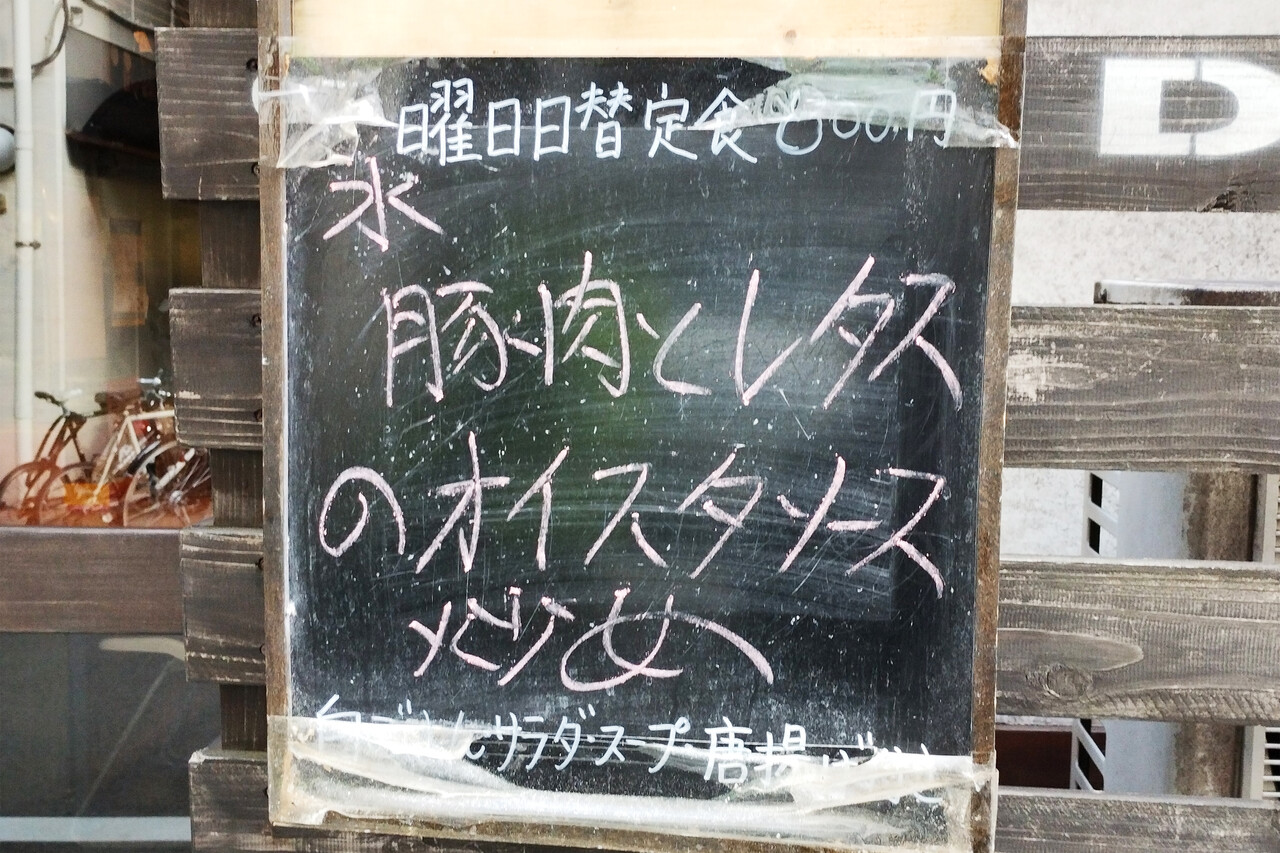 曜日日替定食 800円
水
豚肉とレタス
のオイスタソース
炒め
白ごはんサラダスープ唐揚
D